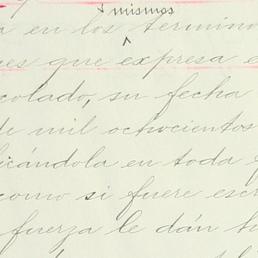 mismos
a en los termino
es que expresa e
colado, su fecha
de mil ochocientos
icándola en toda
como si fuere escr
fuerza le dán